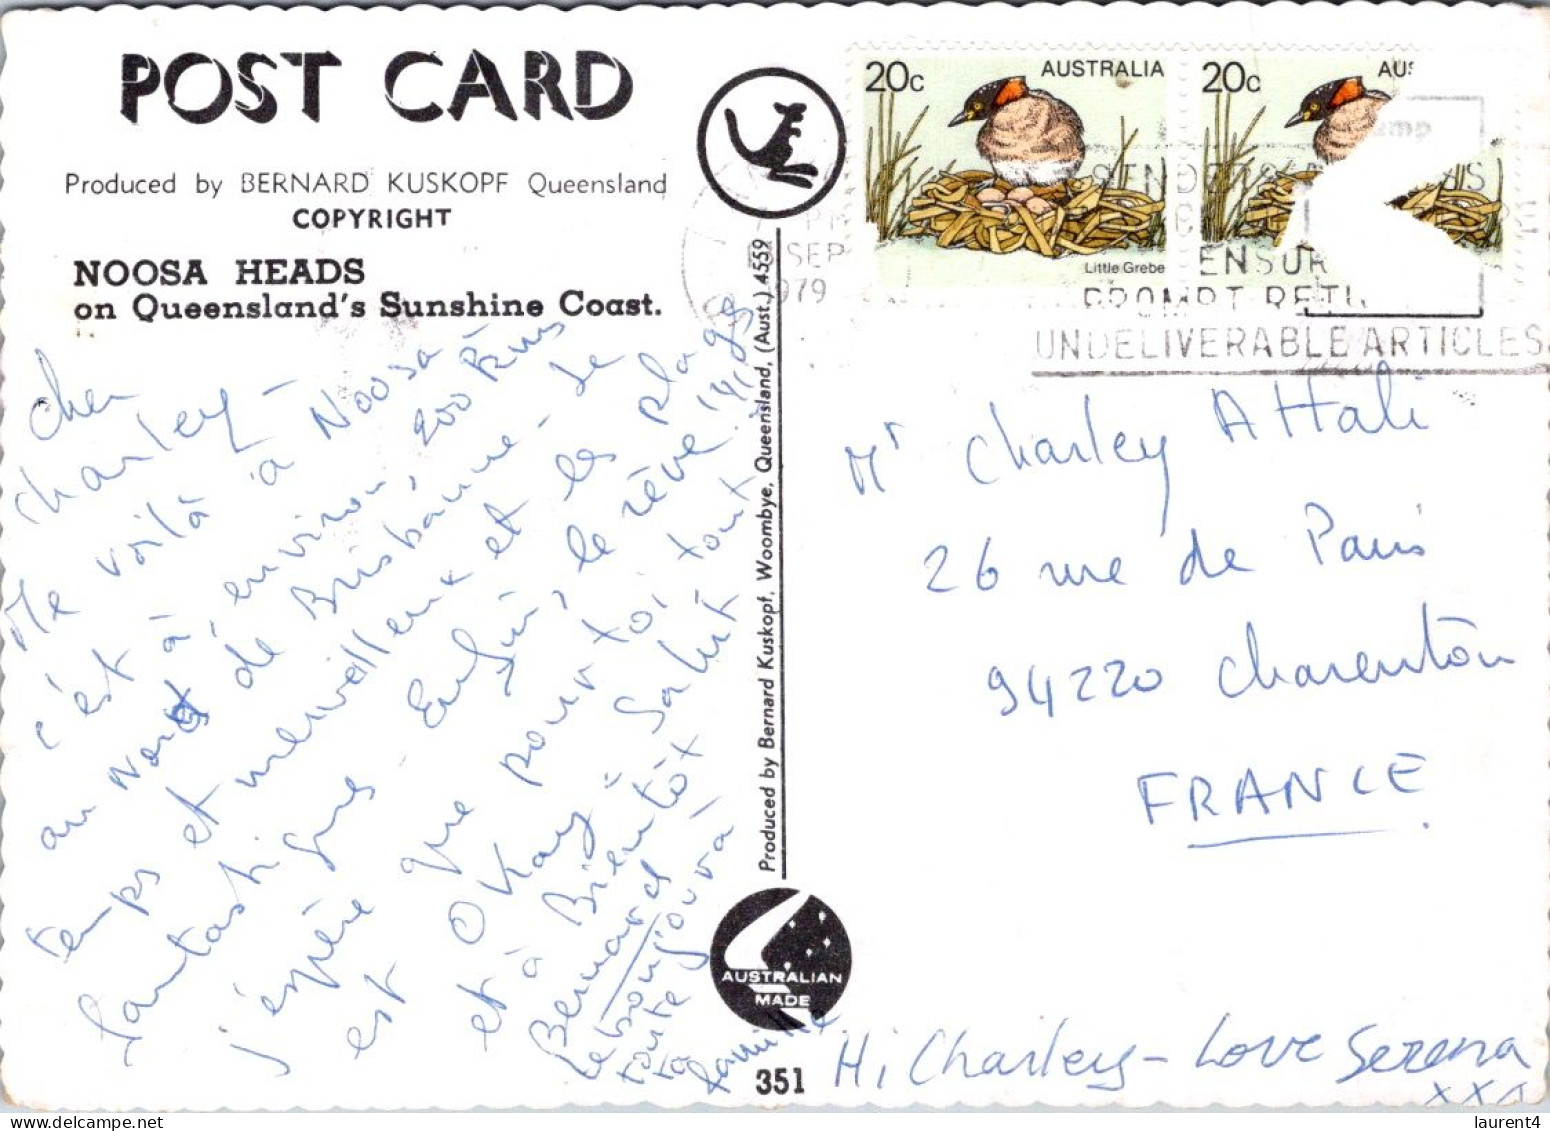 POST CARD
Produced by BERNARD KUSKOPF Queensland
COPYRIGHT
NOOSA HEADS
on Queensland's Sunshine Coast.
Cher
Charley -
Me voilà à Noosa -
c'est à environ 200 Kms
au Nord de Brisbanne - Le
temps est merveilleux et les plages
fantastiques - Enfin, le rêve !
j'espère que pour toi, tout
est Okay - Salut
et à Bientôt
Bernard
Le bonjour à
toute
ta famille
Produced by Bernard Kuskopf, Woombye, Queensland, (Aust.) 4559
AUSTRALIAN
MADE
351
20c AUSTRALIA
Little Grebe
20c AUS
SEP
1979
ENSUR
PROMPT RETU
UNDELIVERABLE ARTICLES
Mr Charley Attali
26 rue de Paris
94220 Charenton
FRANCE
Hi Charley - Love Serena
xxx
delcampe.net
laurent4